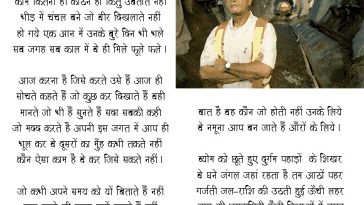 काम कितना ही कठिन हो किन्तु उबताते नहीं
भीड़ में चंचल बने जो वीर दिखलाते नहीं
हो गये एक आन में उनके बुरे दिन भी भले
सब जगह सब काल में वे ही मिले फूले फले ।
आज करना है जिसे करते उसे हैं आज ही
सोचते कहते हैं जो कुछ कर दिखाते हैं वही
मानते जो भी हैं सुनते हैं सदा सबकी कही
जो मदद करते हैं अपनी इस जगत में आप ही
भूल कर वे दूसरों का मुँह कभी तकते नहीं
कौन ऐसा काम है वे कर जिसे सकते नहीं ।
जो कभी अपने समय को यों बिताते नहीं
बात है वह कौन जो होती नहीं उनके लिये
वे नमूना आप बन जाते हैं औरों के लिये ।
व्योम को छूते हुए दुर्गम पहाड़ों के शिखर
वे घने जंगल जहां रहता है तम आठों पहर
गर्जती जल-राशि की उठती हुई ऊँची लहर